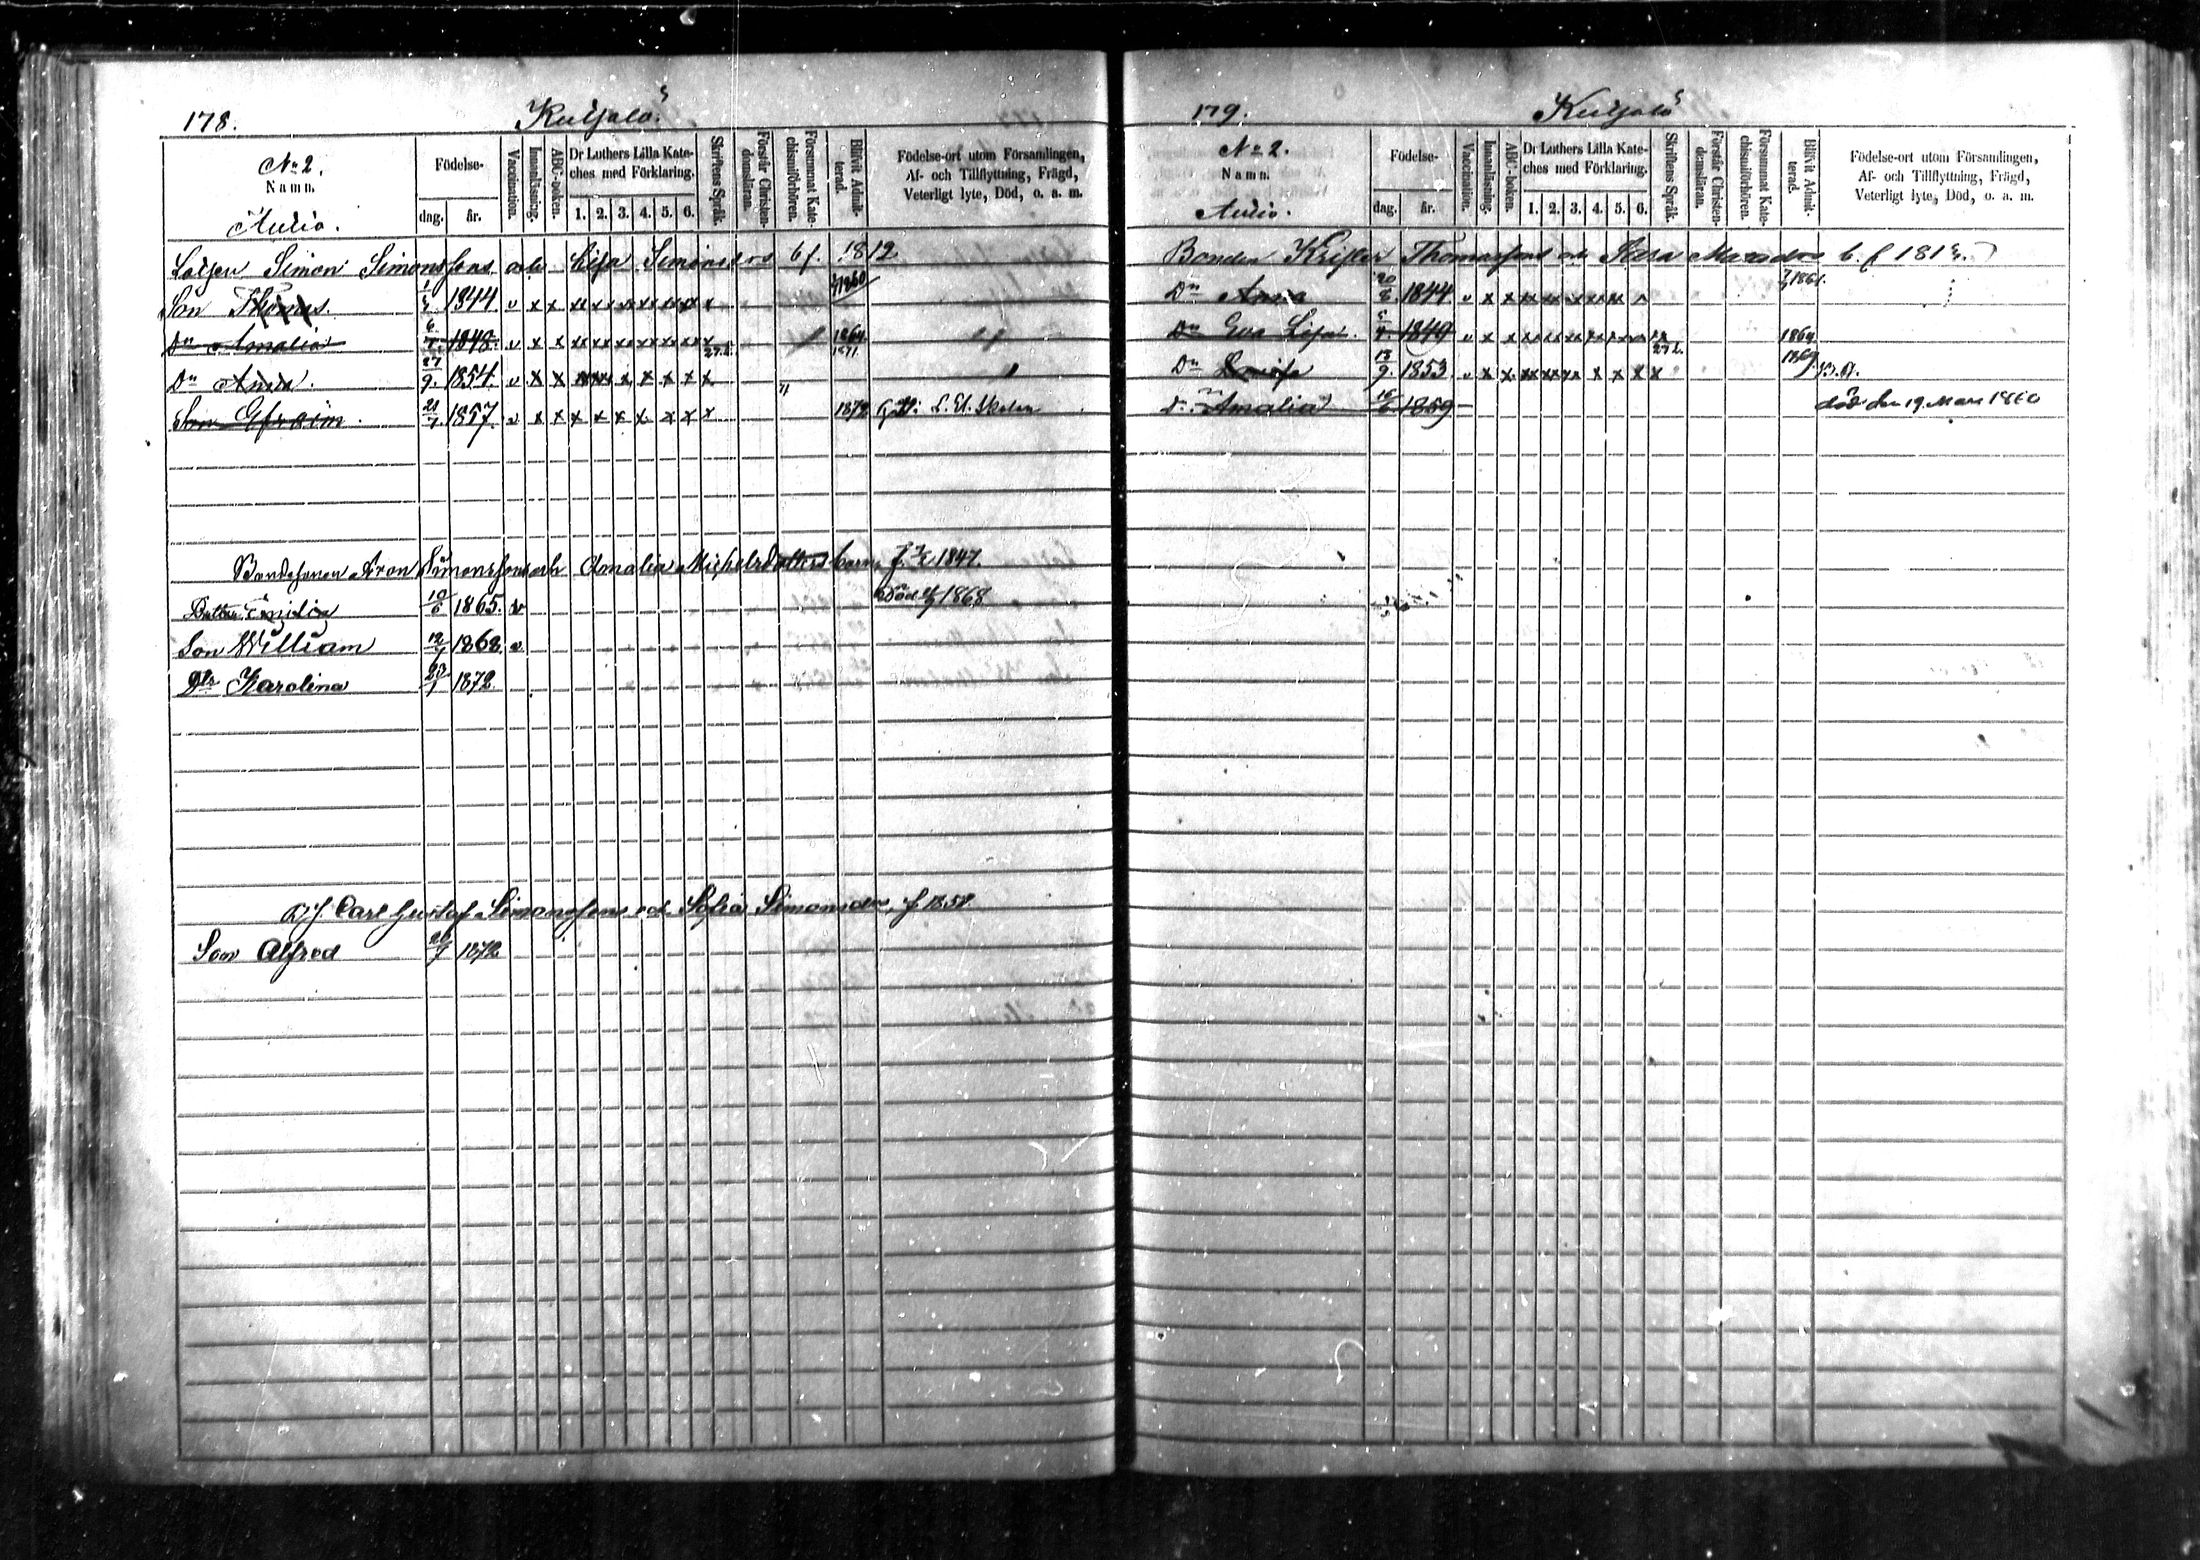 178.
Kutjala
No 2.
Namn.
Aulio.
Födelse-
dag.
år.
Vaccination.
Innanläsning.
ABC-boken.
Dr Luthers Lilla Kate-
ches med Förklaring.
1. 2. 3. 4. 5. 6.
Skriftens Språk.
Förstår Christen-
domsläran.
Försummat Kate-
chismiförhören.
Blifvit Admit-
terad.
Födelse-ort utom Församlingen,
Af- och Tillflyttning, Frägd,
Veterligt lyte, Död, o. a. m.
Simon Simonssons och Lisa Simonsdrs b f. 1812
Son Thomas. 1844 v x x x x x x x x x 1860
Dr Amalia 6 1848. v x x x x x x x x x 1864
Dr Anna. 27/9. 1854. v x x x x x x x x x 1871
Son Efraim. 21 1857. v x x x x x x x x x 1872
Bondesonen Aron Simonssons och Amalia Michelsdotters barn f. 1847.
Dotter Emilia 10/6 1865. v Död 1868
Son William 12 1868 v
Dtr Karolina 23/1 1872
Carl Gustaf Simonssons och Sofia Simonsdrs f 1858
Son Alfred 1872
179.
Kutjala
No 2.
Namn.
Aulio.
Födelse-
dag.
år.
Vaccination.
Innanläsning.
ABC-boken.
Dr Luthers Lilla Kate-
ches med Förklaring.
1. 2. 3. 4. 5. 6.
Skriftens Språk.
Förstår Christen-
domsläran.
Försummat Kate-
chismiförhören.
Blifvit Admit-
terad.
Födelse-ort utom Församlingen,
Af- och Tillflyttning, Frägd,
Veterligt lyte, Död, o. a. m.
Bonden Krister Thomassons och b. f
Dr Anna 20 1844 v x x x x x x x x 1861.
Dr Eva Lisa. 5 1849 v x x x x x x x x x 1864
Dr Lovisa 13/9. 1853 v x x x x x x x x x 1869
Dr Amalia 16/6 1859 död den 19 Mars 1860